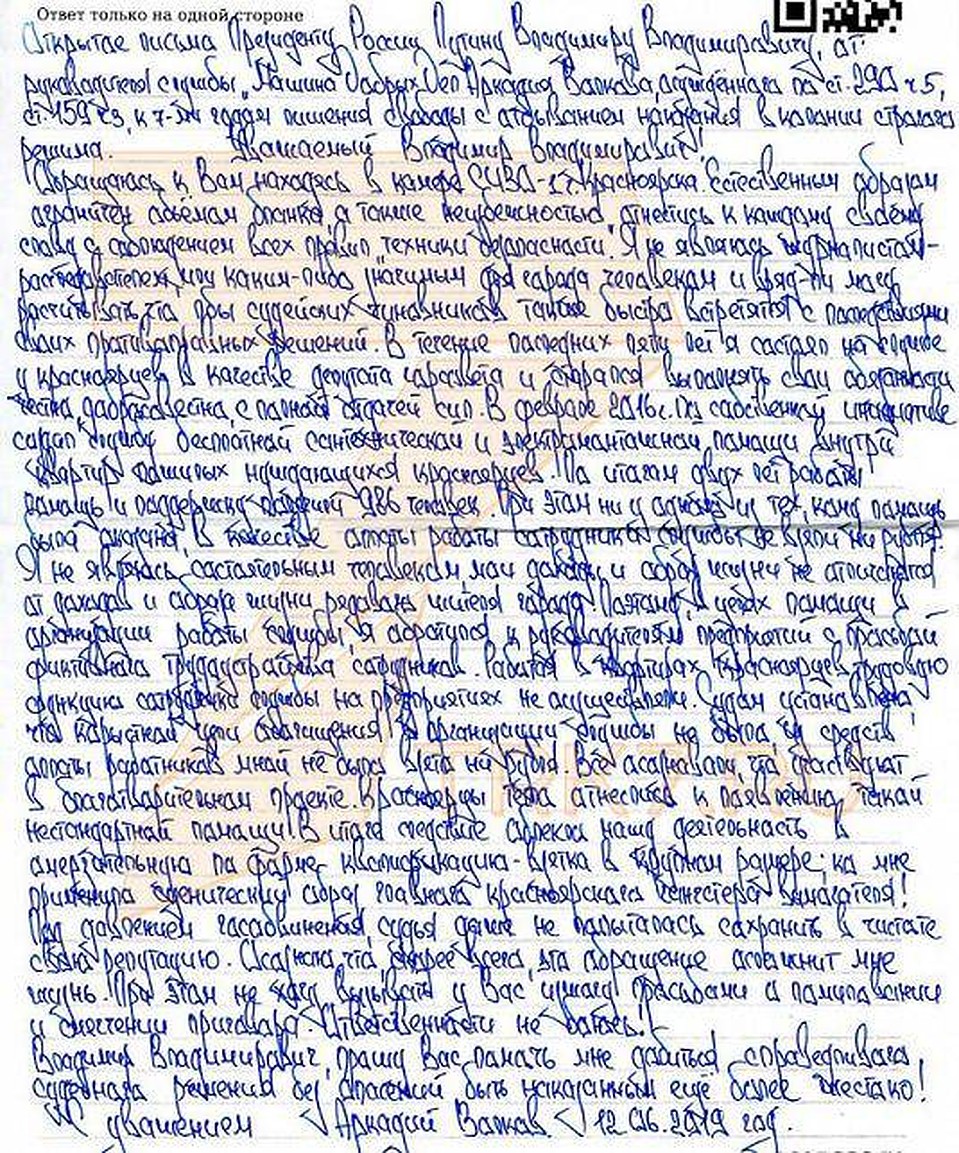 Ответ только на одной стороне
Открытое письмо Президенту России Путину Владимиру Владимировичу, от
руководителя службы „Машина Добрых Дел" Аркадия Волкова, осуждённого по ст. 290 ч 5,
ст. 159 ч3, к 7-ми годам лишения свободы с отбыванием наказания в колонии строгого
режима. Уважаемый Владимир Владимирович!
Обращаюсь к Вам находясь в камере СИЗО-1 г. Красноярска. Естественным образом
ограничен объёмом бланка, а также неизбежностью отнестись к каждому своему
слову с соблюдением всех правил „техники безопасности". Я не являюсь журналистом-
расследователем, или каким-либо значимым для города человеком и вряд-ли могу
расчитывать, что пары судейских чиновников также быстро встретятся с последствиями
своих противоправных решений. В течение последних пяти лет я состоял на службе
у красноярцев в качестве депутата горсовета и старался выполнять свои обязанности
честно, добросовестно, с полной отдачей сил. В феврале 2016 г. по собственной инициативе
создал службу бесплатной сантехнической и электромонтажной помощи внутри
квартир пожилых нуждающихся красноярцев. По итогам двух лет работы
помощь и поддержку получили 986 человек. При этом ни у одного из тех, кому помощь
была оказана, в качестве оплаты работы сотрудников службы не взяли ни рубля.
Я не являюсь состоятельным человеком, мои доходы и образ жизни не отличаются
от доходов и образа жизни рядового жителя города. Поэтому, в целях помощи в
организации работы службы, я обратился к руководителям предприятий с просьбой
фиктивного трудоустройства сотрудников. Работая в квартирах Красноярцев, трудовую
функцию сотрудники службы на предприятиях не осуществляли. Судом установлено,
что корыстной цели обогащения в организации службы не было, из средств
оплаты работников мной не было взято ни рубля. Все осознавали, что участвуют
в благотворительном проекте. Красноярцы тепло отнеслись к появлению такой
нестандартной помощи. В итоге следствие облекло нашу деятельность в
омерзительную по форме квалификацию - взятка в крупном размере; ко мне
применила сценический образ главного красноярского гангстера вымогателя!
Под давлением гособвинения, судья даже не попыталась сохранить в чистоте
свою репутацию. Осознаю, что, скорее всего, это обращение осложнит мне
жизнь. При этом не хочу вызывать у Вас изжогу просьбами о помиловании
и смягчении приговора. Ответственности не боюсь!
Владимир Владимирович, прошу Вас помочь мне добиться справедливого
судебного решения без опасений быть наказанным ещё более жестоко!
С уважением Аркадий Волков 12.06.2019 год.